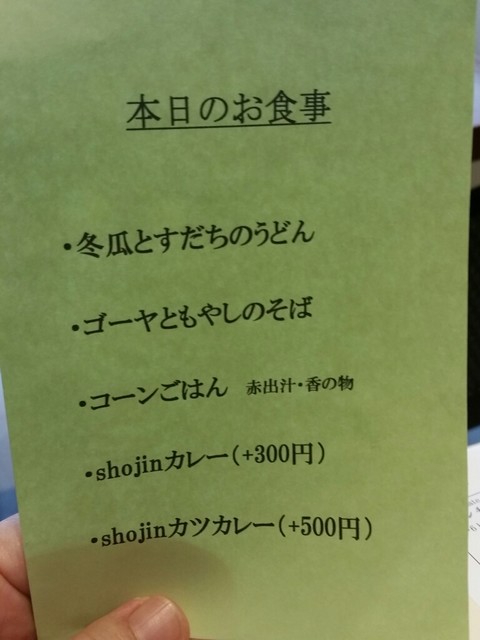 本日のお食事
・冬瓜とすだちのうどん
・ゴーヤともやしのそば
・コーンごはん 赤出汁・香の物
・shojinカレー(+300円)
・shojinカツカレー(+500円)